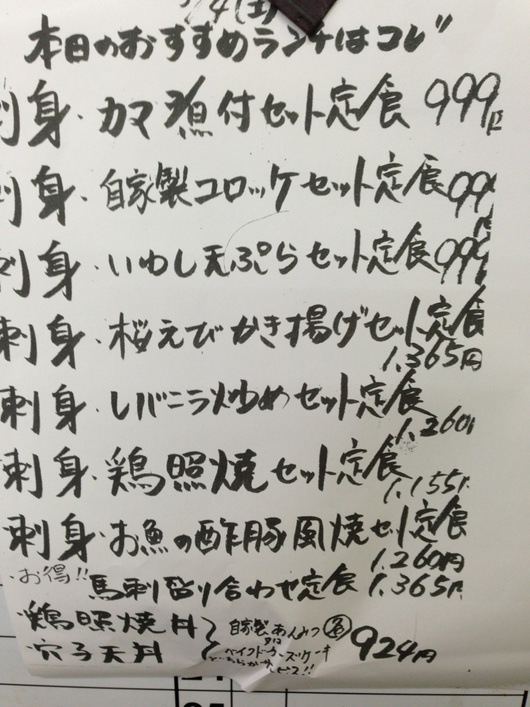 4(土)
本日のおすすめランチはコレ"
刺身・カマ煮付セット定食 999円
刺身・自家製コロッケセット定食 999円
刺身・いわし天ぷらセット定食 999
刺身・桜えびかき揚げセット定食
1,365円
刺身・レバニラ炒めセット定食
1,260円
刺身・鶏照焼セット定食
1,155円
刺身・お魚の酢豚風焼セット定食
1,260円
・お得!! 馬刺盛り合わせ定食 1,365円
・鶏照焼丼
・穴子天丼
自家製あんみつ
又は
ベイクドチーズケーキ
どちらかサービス!!
各 924円